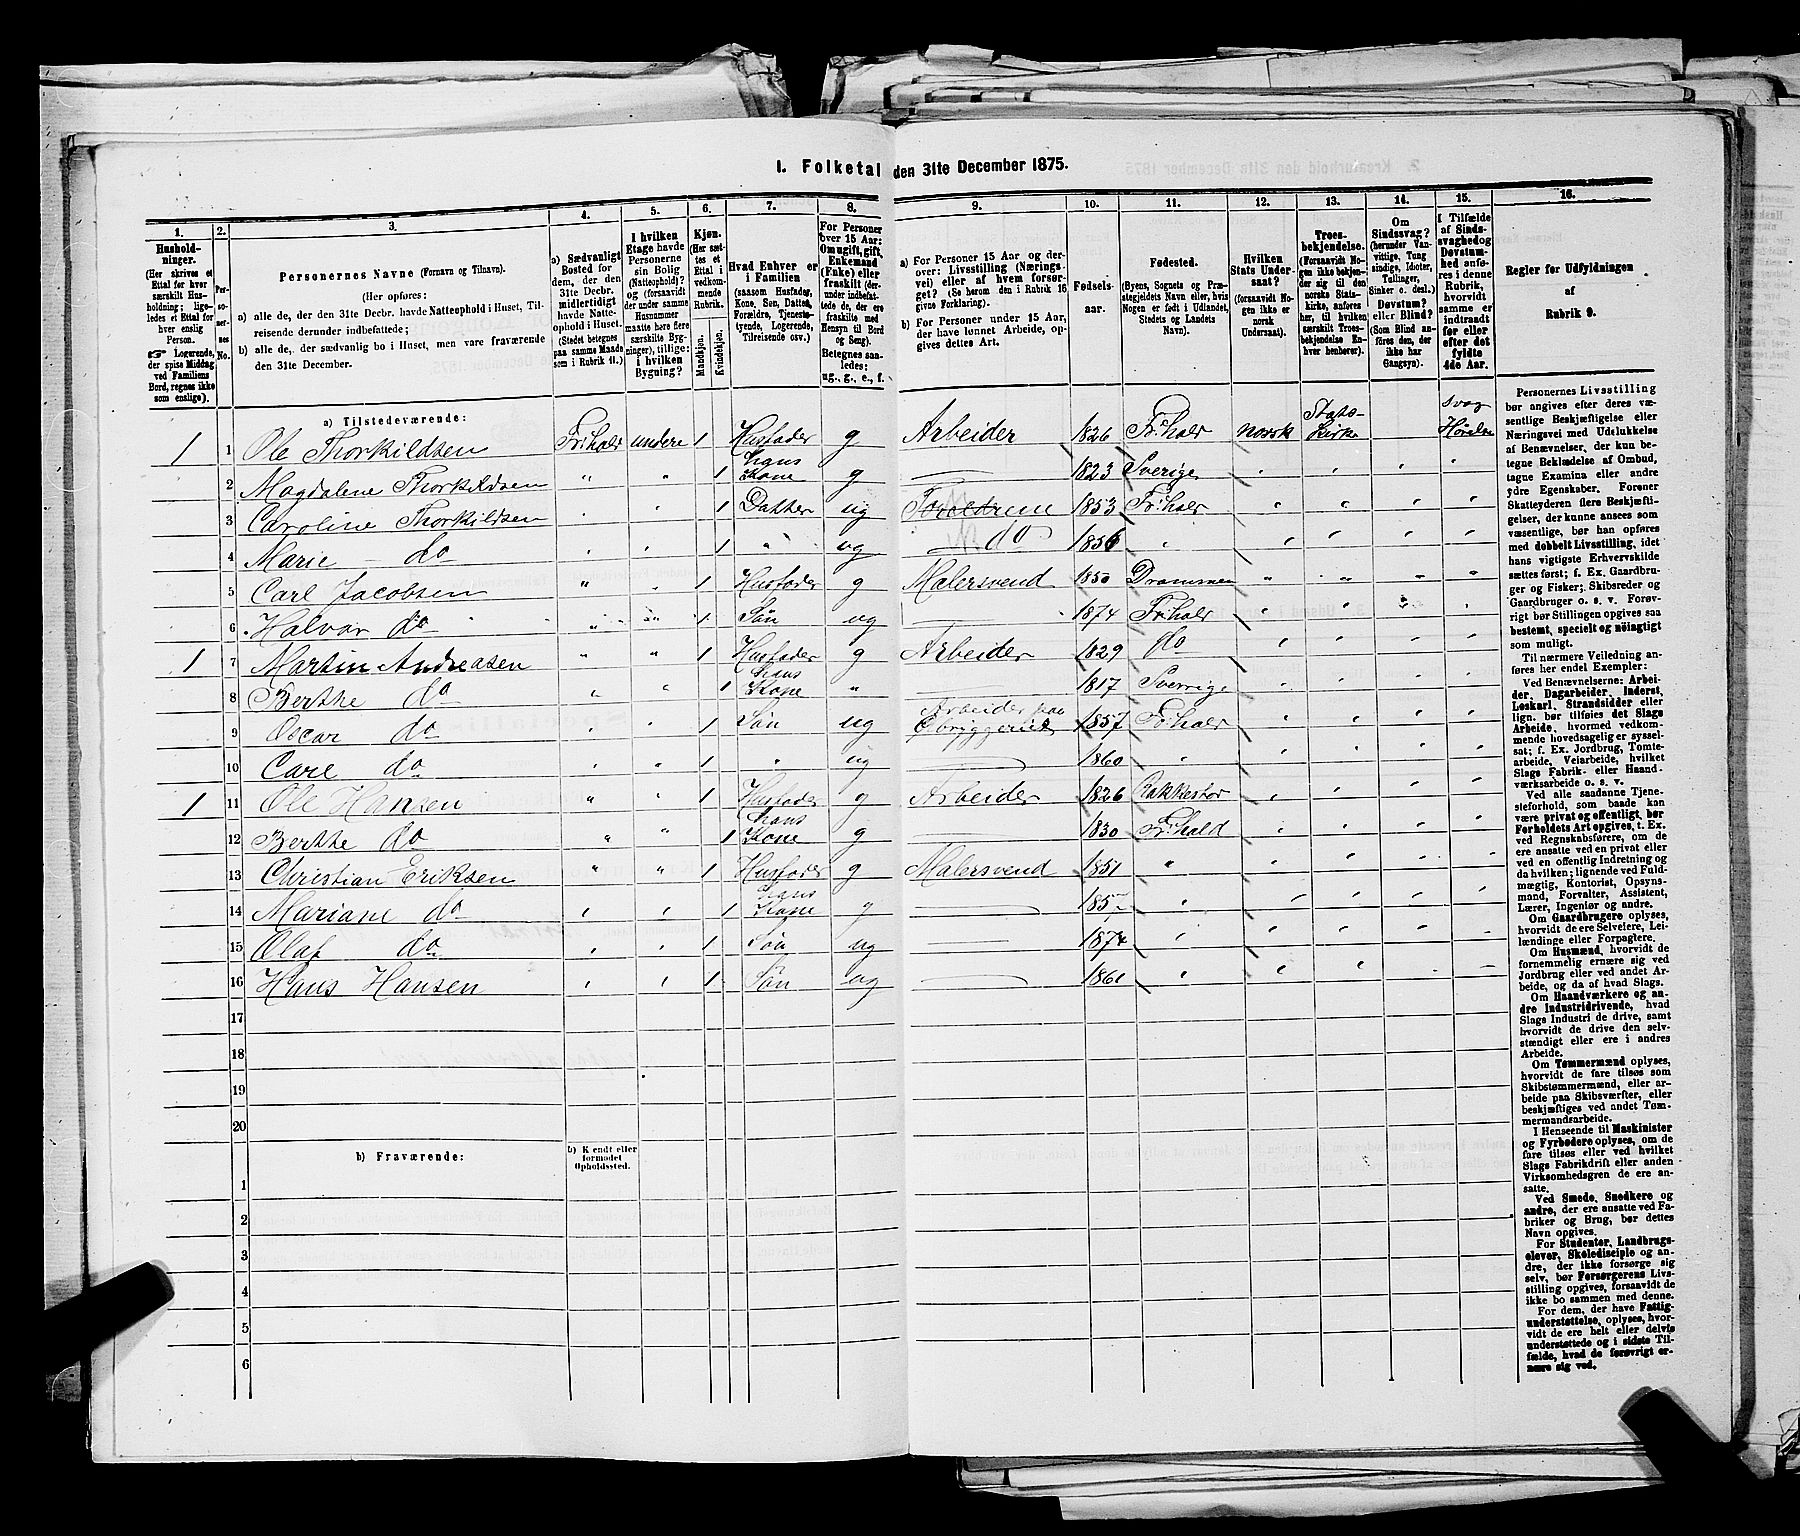 1. Folketal den 31te December 1875.
1. 2. 3. 4. 5. 6. 7. 8. 9. 10. 11. 12. 13. 14. 15. 16.
Husholdninger.
(Her skrives et Ettal for hver særskilt Husholdning; ligeledes et Ettal for hver enslig Person.
☞ Logerende, der spise Middag ved Familiens Bord, regnes ikke som enslige).
Personernes No.
Personernes Navne (Fornavn og Tilnavn).
(Her opføres:
a) alle de, der den 31te Decbr. havde Natteophold i Huset, Tilreisende derunder indbefattede;
b) alle de, der sædvanlig bo i Huset, men vare fraværende den 31te December.
a) Sædvanligt Bosted for dem, der den 31te Decbr. midlertidigt havde Natteophold i Huset. (Stedet betegnes paa samme Maade som i Rubrik 11.)
I hvilken Etage havde Personerne sin Bolig (Natteophold)? og (forsaavidt der under samme Husnummer maatte høre flere særskilte Bygninger), tillige: i hvilken Bygning?
Kjøn.
(Her sættes et Ettal i vedkommende Rubrik.
Mandkjøn. Kvindekjøn.
Hvad Enhver er i Familien
(saasom Husfader, Kone, Søn, Datter, Forældre, Tjenestetyende, Logerende, Tilreisende osv.)
For Personer over 15 Aar: Om ugift, gift, Enkemand (Enke) eller fraskilt (derunder indbefattede de, der ere fraskilte med Hensyn til Bord og Seng). Betegnes saaledes: ug., g., e., f.
a) For Personer 15 Aar og derover: Livsstilling (Næringsvei) eller af hvem forsørget? (Se herom den i Rubrik 16 givne Forklaring).
b) For Personer under 15 Aar, der have lønnet Arbeide, opgives dettes Art.
Fødselsaar.
Fødested.
(Byens, Sognets og Præstegjeldets Navn eller, hvis Nogen er født i Udlandet, Stedets og Landets Navn).
Hvilken Stats Undersaat?
(forsaavidt Nogen ikke er norsk Undersaat).
Troesbekjendelse.
(Forsaavidt Nogen ikke bekjender sig til den norske Statskirke, anføres her, til hvilken særskilt Troesbekjendelse Enhver henhører).
Om Sindssvag?
(herunder Vanvittige, Tungsindige, Idioter, Tullinger, Sinker o. desl.)
Døvstum? eller Blind?
(Som Blind anføres den, der ikke har Gangsyn).
I Tilfælde af Sindssvaghed og Døvstumhed anføres i denne Rubrik, hvorvidt samme er indtraadt før eller efter det fyldte 4de Aar.
Regler for Udfyldningen af Rubrik 9.
a) Tilstedeværende:
1 1 Ole Thorkildsen Fr:hald undere 1 Husfader g Arbeider 1826 Fr:hald norsk Stats-kirke svag Hørelse
2 Magdalene Thorkildsen " " 1 hans Kone g — 1823 Sverige
3 Caroline Thorkildsen 1 Datter ug Forældrene 1853 Fr:hald
4 Marie do 1 " ug do 1856 "
5 Carl Jacobsen " 1 Husfader g Malersvend 1850 Drammen " " " "
6 Halvar do " 1 Søn ug — 1874 Fr:hald
1 7 Martin Andreasen " " 1 Husfader g Arbeider 1829 do
8 Berthe do 1 hans Kone " — 1817 Sverrige
9 Oscar do 1 Søn ug Arbeider paa 1857 Fr:hald
10 Carl do 1 " ug — 1860 "
1 11 Ole Hansen " " 1 Husfader g Arbeider 1826 Rakkestad
12 Berthe do " " 1 hans Kone g — 1830 Fr:hald
13 Christian Eriksen " " 1 Husfader g Malersvend 1851 "
14 Mariane do 1 hans Kone g — 1852 "
15 Olaf do 1 Søn ug — 1874 "
16 Hans Hansen 1 Søn ug — 1861 "
17
18
19
20
b) Fraværende:
b) Kjendt eller formodet Opholdssted.
1
2
3
4
5
6
Personernes Livsstilling
bør angives efter deres væ-
sentlige Beskjæftigelse eller
Næringsvei med Udelukkelse
af Benævnelser, der kun be-
tegne Beklædelse af Ombud,
tagne Examina eller andre
ydre Egenskaber. Forener
Skatteyderen flere Beskjæfti-
gelser, der kunne ansees som
væsentlige, bør han opføres
med dobbelt Livsstilling, idet
hans vigtigste Erhvervskilde
sættes først; f. Ex. Gaardbru-
ger og Fisker; Skibsreder og
Gaardbruger o. s. v. Forøv-
rigt bør Stillingen opgives saa
bestemt, specielt og nøiagtigt
som muligt.
Til nærmere Veiledning an-
føres her endel Exempler:
Ved Benævnelserne: Arbei-
der, Dagarbeider, Inderst,
Løskarl, Strandsidder eller
lign. bør tilføies det Slags
Arbeide, hvormed vedkom-
mende hovedsagelig er syssel-
sat; f. Ex. Jordbrug, Tomte-
arbeide, Veiarbeide, hvilket
Slags Fabrik- eller Haand-
værksarbeide o. s. v.
Ved alle saadanne Tjene-
steforhold, som baade kan
være privat og offentligt, bør
Forholdets Art opgives, t. Ex.
ved Regnskabsførere, om de
ere ansatte ved en privat eller
ved en offentlig Indretning og
da hvilken; lignende ved Fuld-
mægtig, Kontorist, Opsyns-
mand, Forvalter, Assistent,
Lærer, Ingeniør og andre.
Om Gaardbrugere oplyses,
hvorvidt de ere Selveiere, Lei-
lændinge eller Forpagtere.
Om Husmænd, hvorvidt de
fornemmelig ernære sig ved
Jordbrug eller ved andet Ar-
beide, og da af hvad Slags.
Om Haandværkere og an-
dre Industridrivende, hvad
Slags Industri de drive, samt
hvorvidt de drive den selv-
stændigt eller ere i andres
Arbeide.
Om Tømmermænd oplyses,
hvorvidt de fare tilsøs som
Skibstømmermænd, eller ar-
beide paa Skibsværfter, eller
beskjæftiges ved andet Tøm-
mermandsarbeide.
I Henseende til Maskinister
og Fyrbødere oplyses, om de
fare tilsøs eller ved hvilket
Slags Fabrikdrift eller anden
Virksomhedsgren de ere an-
satte.
Ved Smede, Snedkere og
andre, der ere ansatte ved Fa-
briker og Brug, bør dettes
Navn opgives.
For Studenter, Landbrugs-
elever, Skoledisciple og an-
dre, der ikke forsørge sig
selv, bør Forsørgerens Livs-
stilling opgives, forsaavidt de
ikke bo sammen med denne.
For dem, der have Fattig-
understøttelse, oplyses, hvor-
vidt de ere helt eller delvis
understøttede og i sidste Til-
fælde, hvad de forøvrigt er-
nære sig ved.